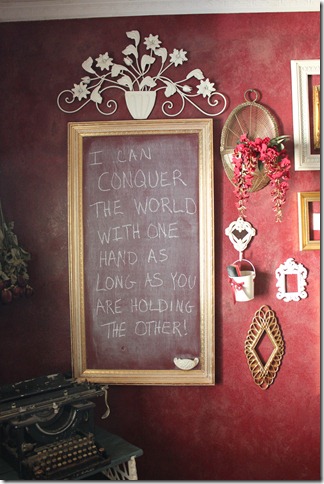 I CAN
CONQUER
THE WORLD
WITH ONE
HAND AS
LONG AS YOU
ARE HOLDING
THE OTHER!